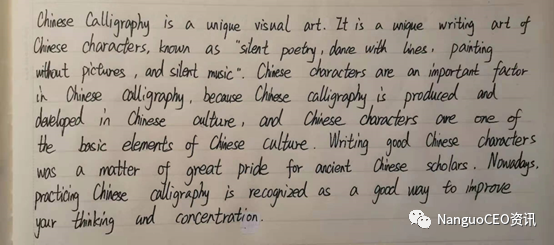 Chinese Calligraphy is a unique visual art. It is a unique writing art of
Chinese characters, known as "silent poetry, dance with lines, painting
without pictures, and silent music". Chinese characters are an important factor
in Chinese calligraphy, because Chinese calligraphy is produced and
developed in Chinese culture, and Chinese characters are one of
the basic elements of Chinese culture. Writing good Chinese characters
was a matter of great pride for ancient Chinese scholars. Nowadays,
practicing Chinese calligraphy is recognized as a good way to improve
your thinking and concentration.
NanguoCEO资讯